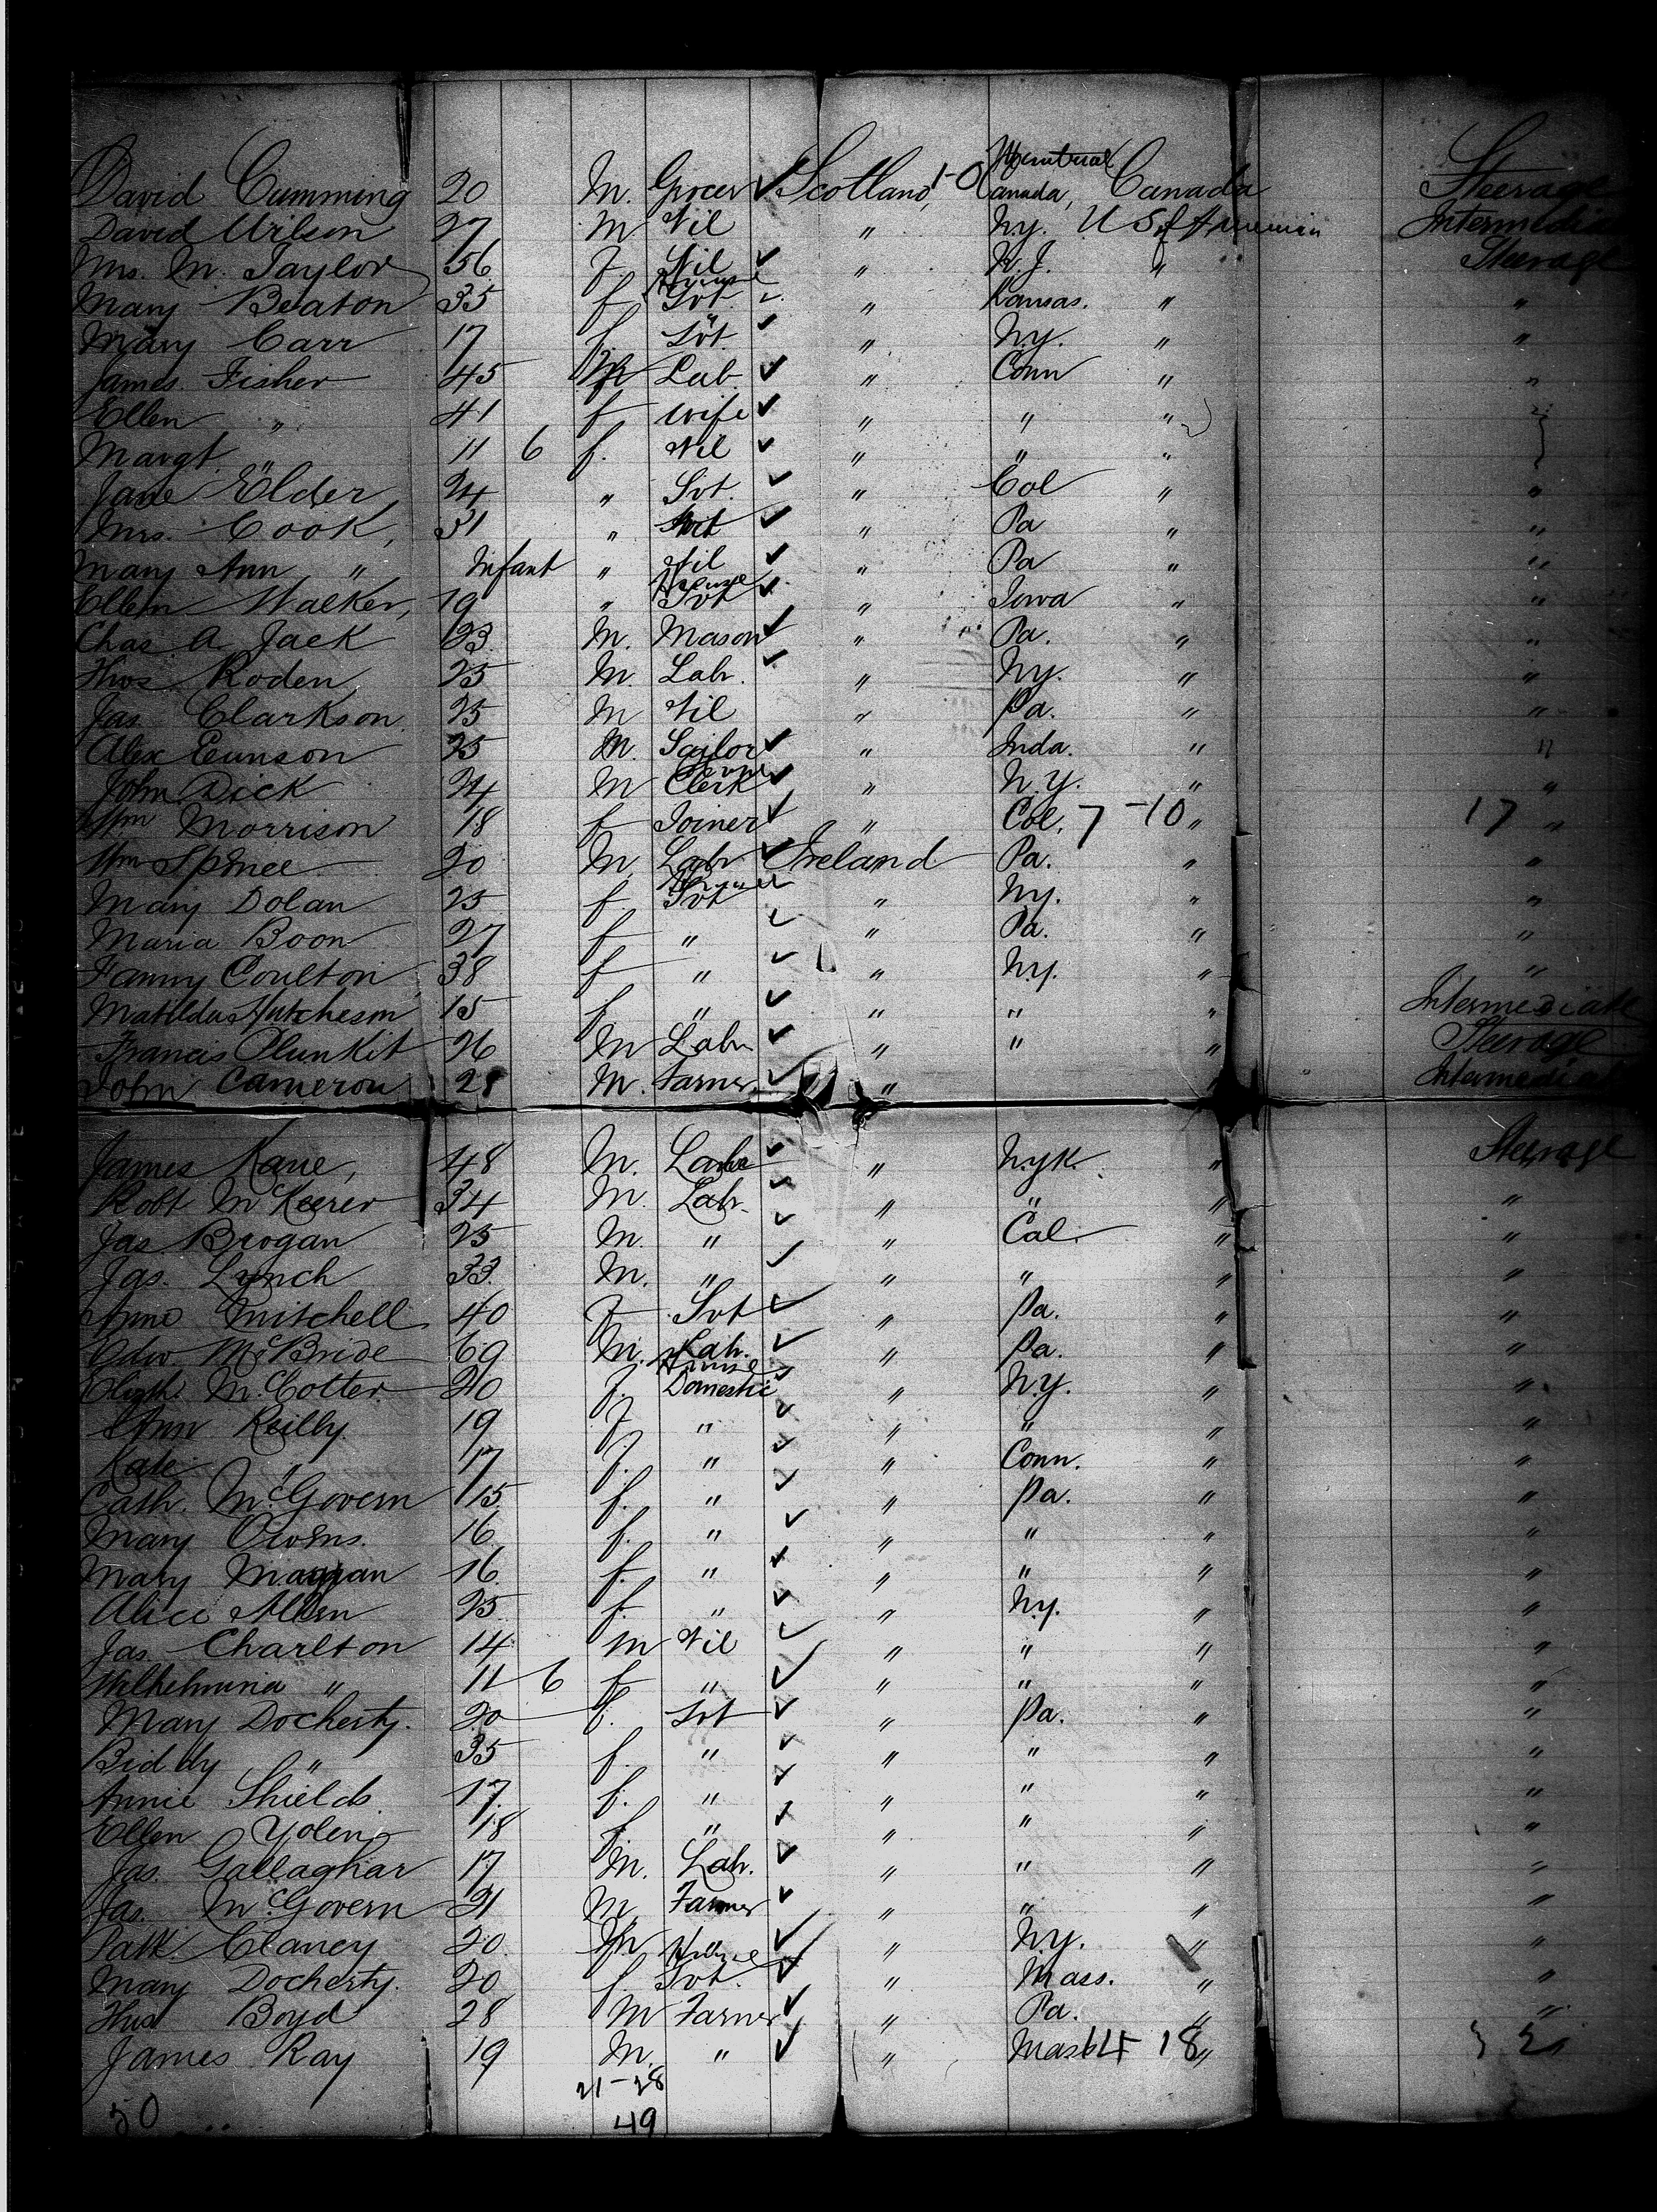 Montreal
David Cumming 20 M. Grocer ✓ Scotland, 1-0 Canada, Canada Steerage
David Wilson 27 M Nil " N.y. U S of America Intermediate
Mrs. M. Taylor 56 F. Nil ✓ " N.J. " Steerage
House
Mary Beaton 35 f Svt. ✓ " Kansas. " "
Mary Carr 17 f. " Svt. ✓ " N.y. " "
James Fisher 45 M Lab. ✓ " Conn " "
Ellen " 41 f wife ✓ " " " "
Margt. " 11 6 f. Nil ✓ " " "
Jane Elder, 24 " Svt. ✓ " Col " "
Mrs. Cook, 31 " ✓ " Pa " "
Mary Ann " Infant " Nil ✓ " Pa " "
House
Ellen Walker, 19 " Svt ✓ " Iowa " "
Chas A Jack 23 M. Mason ✓ " Pa. " "
Thos Roden 25 M. Lab. ✓ " N.y. " "
Jas. Clarkson 25 M Nil " Pa. " "
Alex Eunson 25 M. Sailor ✓ " Inda. " "
John Dick 24 M Clerk ✓ " N.Y. " "
Wm Morrison 18 f Joiner ✓ " Col. 7 -10 " 17 "
Wm Spence 20 M. Labr ✓ Ireland Pa. " "
House
Mary Dolan 25 f. Svt ✓ " N.y. " "
Maria Boon 27 f " ✓ " Pa. " "
Fanny Coulton 38 f " ✓ " N.y. " "
Matilda Hutcheson 15 f " ✓ " " " Intermediate
Francis Plunkit 26 M Labr ✓ " " " Steerage
John Cameron 28 M. Farmer ✓ " " Intermediate
James Kane, 48 M. Labr ✓ " N.yk. " Steerage
Robt McKeever 34 M. Lab. ✓ " " " "
Jas Brogan 25 M. " ✓ " Cal. " "
Jas. Lynch 33. M. " ✓ " " " "
Anne Mitchell 40 F Svt ✓ " Pa. " "
Edw. McBride 69 M. Lab. ✓ " Pa. " "
House
Elizth McCotter 20 f. Domestic ✓ " N.Y. " "
Ann Reilly 19 f " ✓ " " " "
Kate " 17 f. " ✓ " Conn. " "
Cath. McGovern 15 f. " ✓ " Pa. " "
Mary Owens. 16 f. " ✓ " " " "
Mary 16 f. " ✓ " " " "
Alice Allen 25 f. " ✓ " N.y. " "
Jas. Charlton 14 M Nil ✓ " " " "
Wilhelmina " 11 6 f " ✓ " " " "
Mary Docherty. 20 f. Svt ✓ " Pa. " "
Biddy " 35 f. " ✓ " " " "
Annie Shields 17 f. " ✓ " " " "
Ellen 18 f " ✓ " " " "
Jas. Gallaghar 17 M. Lab. ✓ " " " "
Jas. McGovern 21 M. Farmer ✓ " " " "
Patk Clancy 20 M " ✓ " N.y. " "
House
Mary Docherty. 20 f. Svt. ✓ " Mass. " "
Thos Boyd 28 M Farmer ✓ " Pa. " "
James Ray 19 M. " ✓ " Mass 64 18 "
21-28
50 49